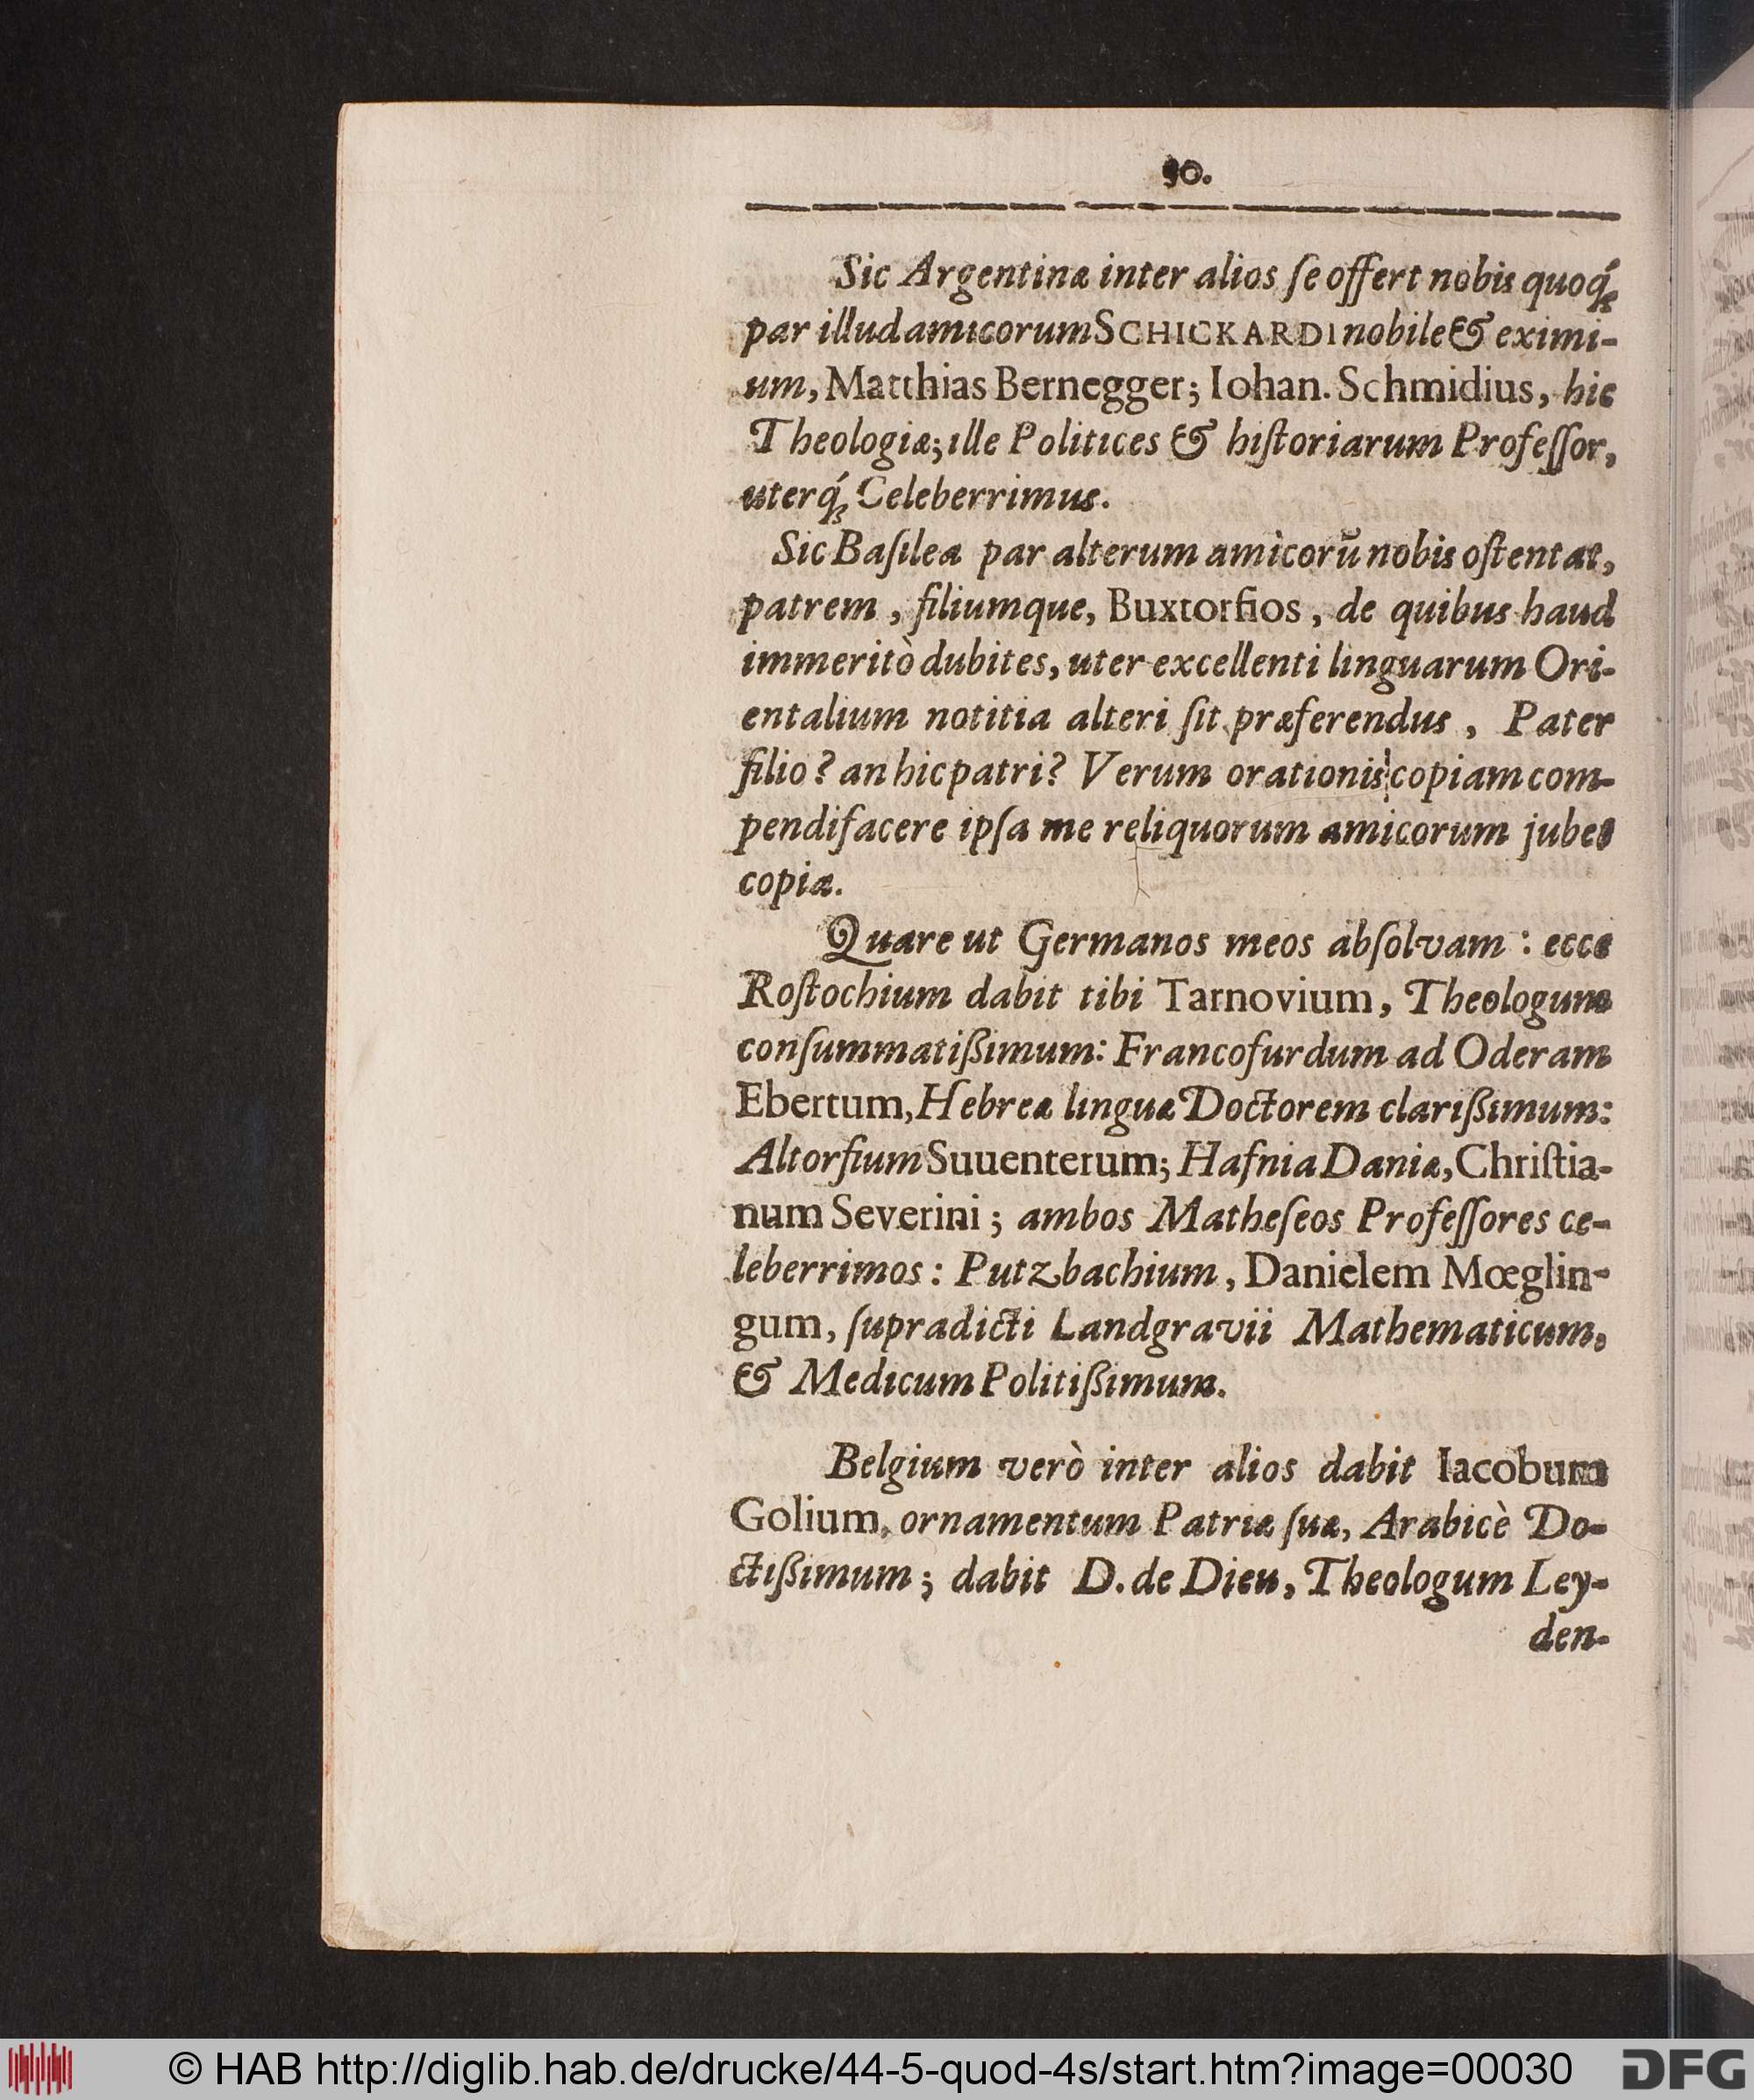 30.
Sic Argentinæ inter alios ſe offert nobis quoq́;
par illud amicorum SCHICKARDI nobile & eximi-
um, Matthias Bernegger; Iohan. Schmidius, hic
Theologiæ; ille Politices & hiſtoriarum Profeſſor,
uterq́; Celeberrimus.
Sic Baſilea par alterum amicorũ nobis oſtentat,
patrem, filiumque, Buxtorfios, de quibus haud
immeritò dubites, uter excellenti linguarum Ori-
entalium notitia alteri ſit præferendus, Pater
filio? an hic patri? Verum orationis copiam com-
pendifacere ipſa me reliquorum amicorum jubet
copia.
Quare ut Germanos meos abſolvam: ecce
Roſtochium dabit tibi Tarnovium, Theologum
conſummatißimum: Francofurdum ad Oderam
Ebertum, Hebreæ linguæ Doctorem clarißimum:
Altorfium Suuenterum; Hafnia Daniæ, Chriſtia-
num Severini; ambos Matheſeos Profeſſores ce-
leberrimos: Putzbachium, Danielem Mœglin-
gum, ſupradicti Landgravii Mathematicum,
& Medicum Politißimum.
Belgium verò inter alios dabit Iacobum
Golium, ornamentum Patriæ ſuæ, Arabicè Do-
ctißimum; dabit D. de Dieu, Theologum Ley-
den-
© HAB http://diglib.hab.de/drucke/44-5-quod-4s/start.htm?image=00030
DFG